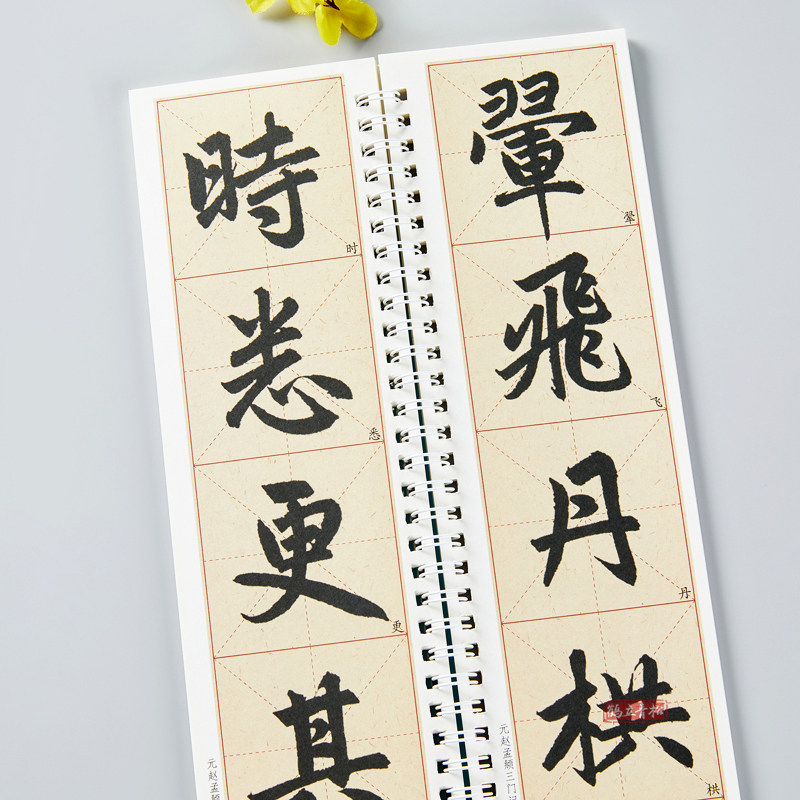 翬飛丹栱
翚
飞
丹
栱
元 赵孟頫三门
時悉更其
时
悉
更
元 赵孟頫
鹤立青松